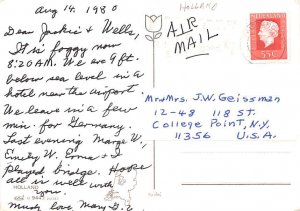 Aug 14, 1980
Dear Jackie & Wells,
It is foggy now
8:20 A.M. We are 9 ft.
below sea level in a
hotel near the airport.
We leave in a few
min for Germany.
Last evening Marge W,
Emily W. Erma & I
played bridge. Hope
all is well with
you.
Much love, Mary G.
HOLLAND
AIR
MAIL
HOLLAND
NEDERLAND
55c
Mr + Mrs. J.W. Geissman
12-48 118 ST.
College Point, N.Y.
11356 U.S.A.